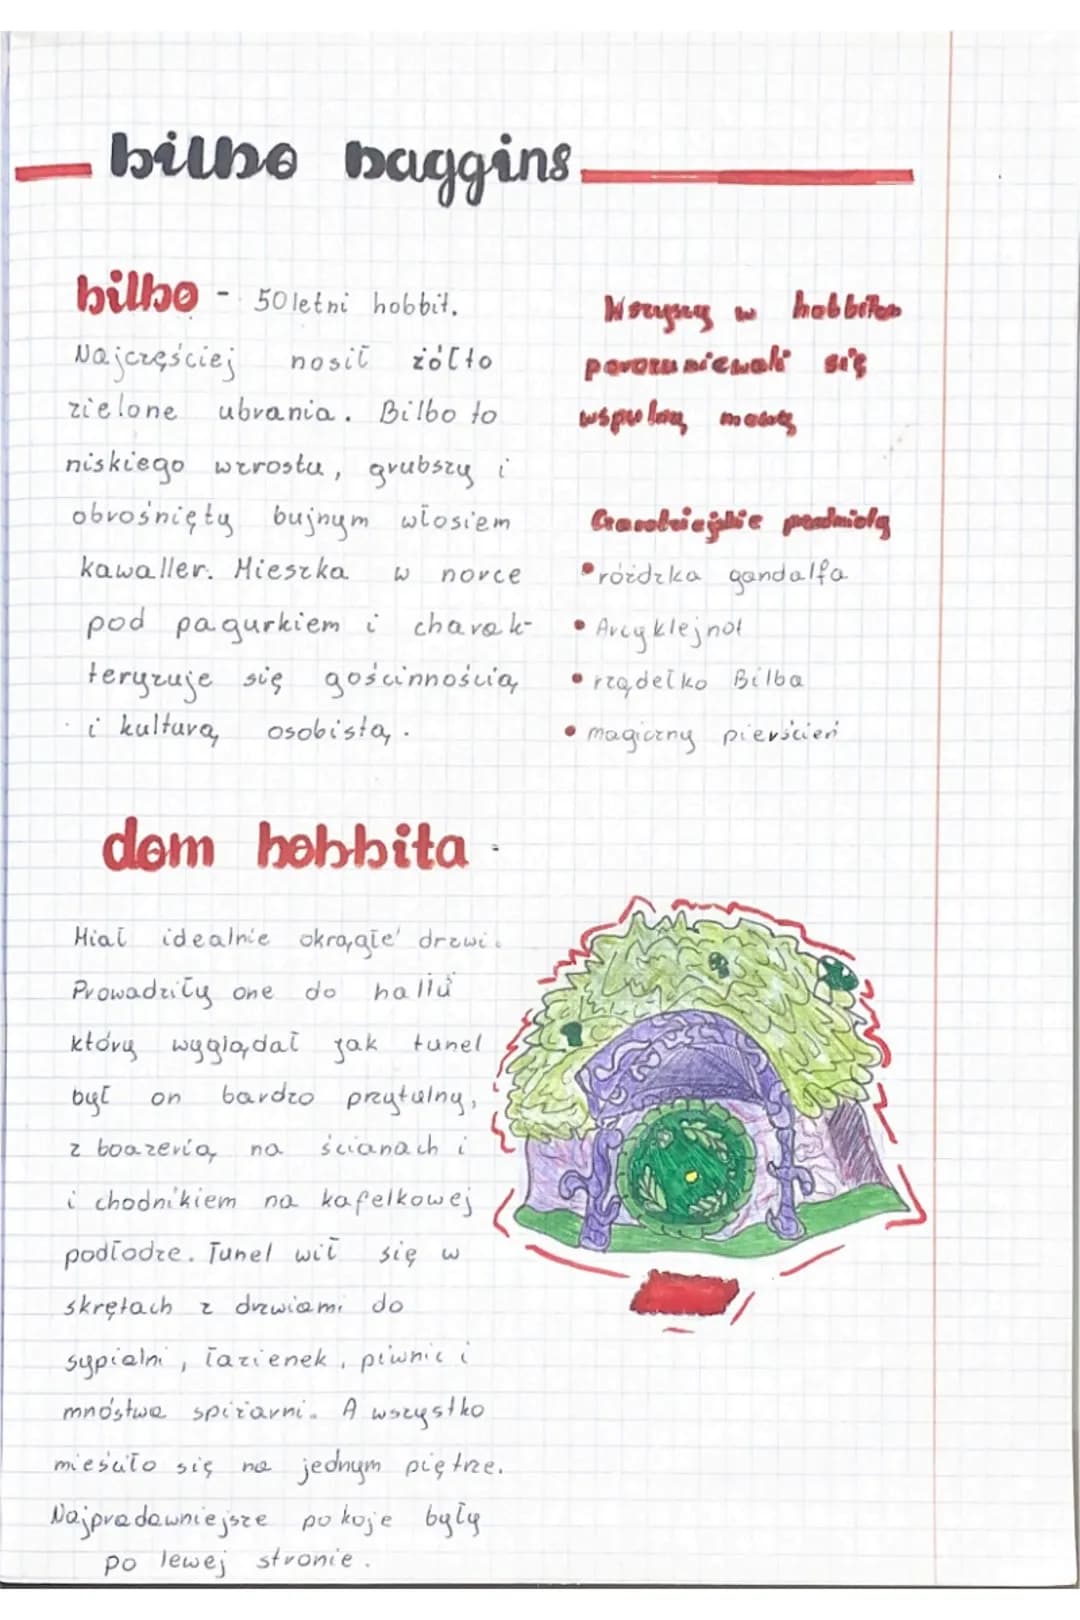 bilbo baggins
bilbo - 50letni hobbit.
Najczęściej nosił żółto
zielone ubrania. Bilbo to
niskiego wzrostu, grubszy i
obrośnięty bujnym włosiem
kawaller. Mieszka w norce
pod pagurkiem i charak-
teryzuje się gościnnością
i kulturą osobistą.
Wszyscy w hobbiton
porozumiewali się
wspulną mową
Czarodziejskie przdmioty
• różdzka gandalfa
• Arcyklejnot
• rządełko Bilba
• magiczny pierścień
dom hobbita -
Miał idealnie okrągłe drzwi.
Prowadziły one do hallu
który wyglądał jak tunel
był on bardzo przytulny,
z boazerią na ścianach i
i chodnikiem na kafelkowej
podłodze. Tunel wił się w
skrętach z drzwiami do
sypialni, łazienek, piwnic i
mnóstwa spiżarni. A wszystko
mieściło się na jednym piętrze.
Najpradawniejsze pokoje były
po lewej stronie.